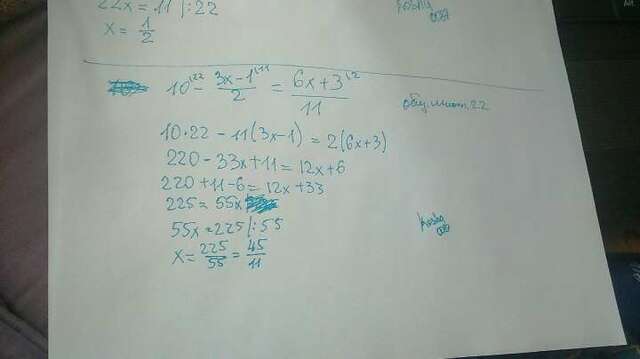 22x = 11 |:22
x = 1/2
10^(22 - 3x-1^(11 / 2 = 6x+3^(2 / 11
10·22 - 11(3x-1) = 2(6x+3)
220 - 33x + 11 = 12x + 6
220 + 11 - 6 = 12x + 33
225 = 55x
55x = 225 |:55
x = 225/55 = 45/11